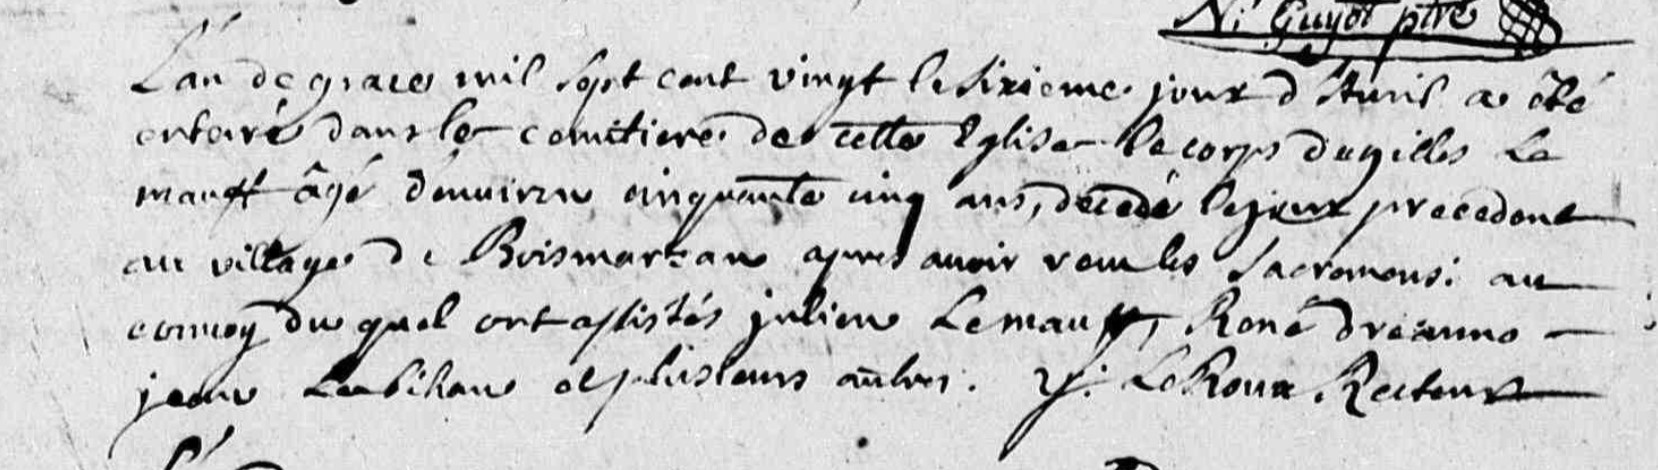 N: Guyot ptre
L'an de grace mil sept cent vingt le sixieme jour d'Avril a êté
enteré dans le cemitiere de cette Eglise le corps de gilles Le
mauff âgé d'environ cinquante cinq ans, decedé le jour precedent
au village de Boismarzan apres avoir receu les Sacremens: au
convoy du quel ont assistés julien Le mauff, René dreanno
jean Le bihan et plusieurs autres. Y: Le Roux Recteur